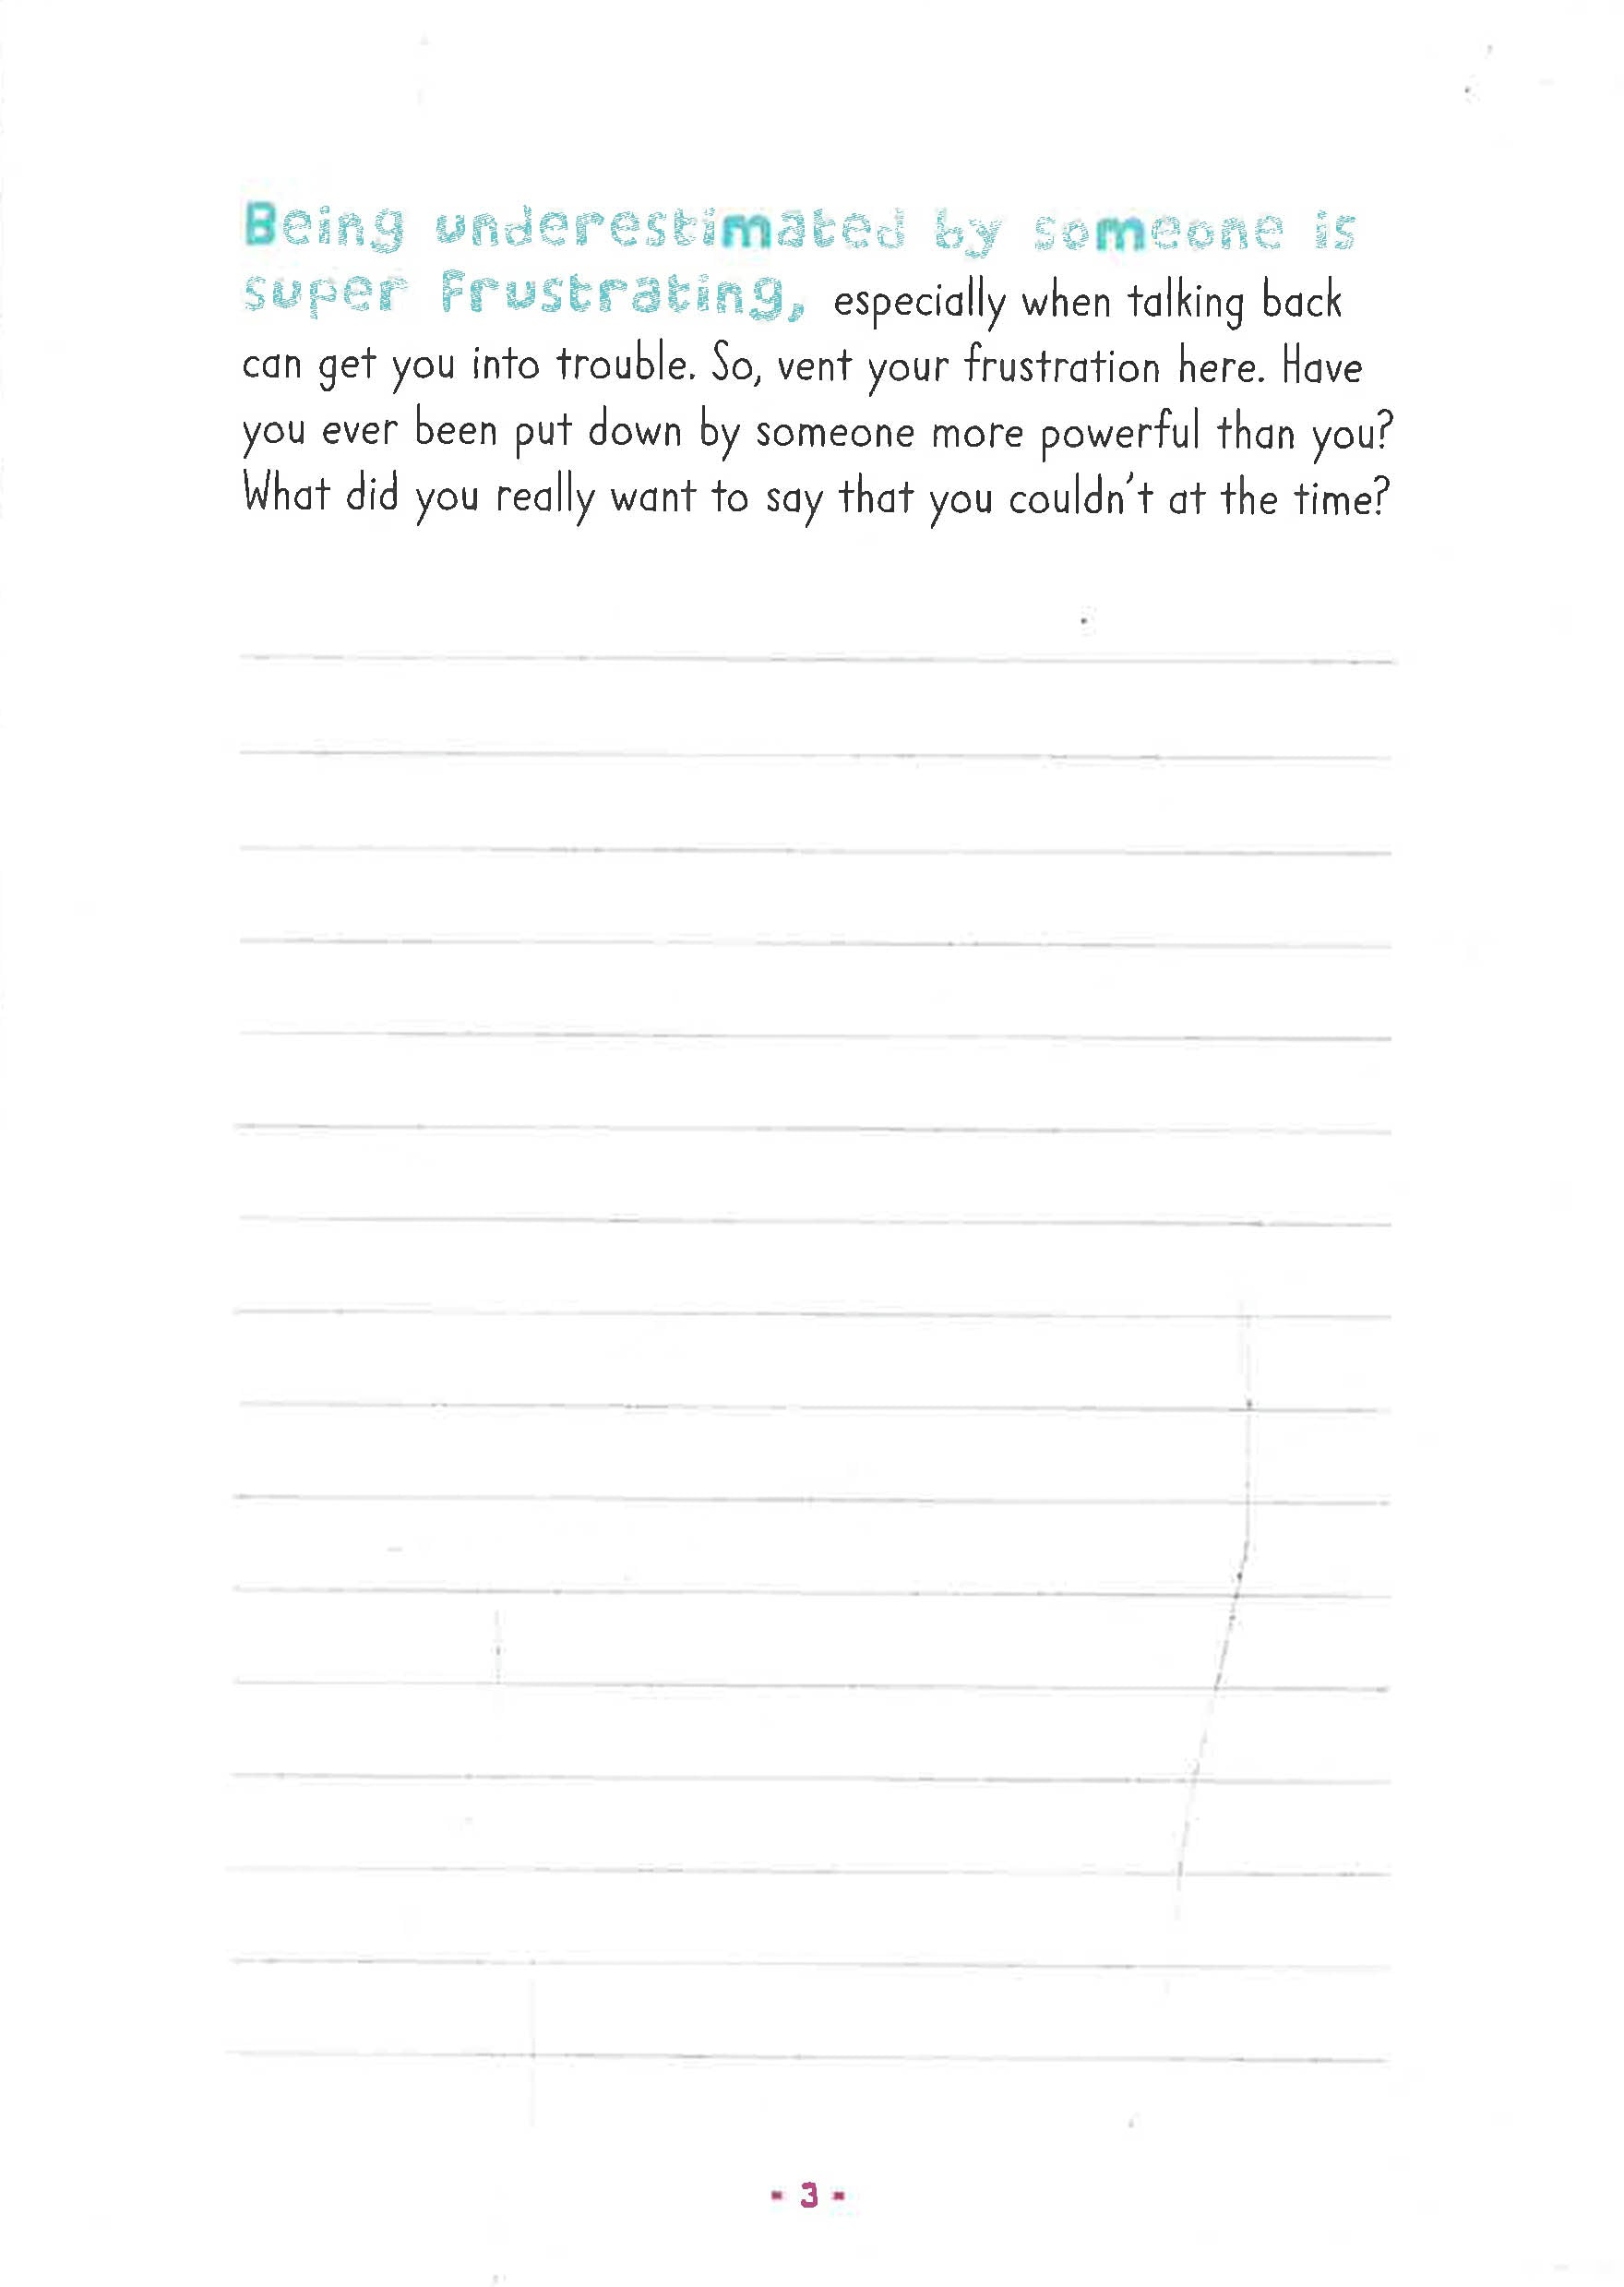 Being underestimated by someone is
super frustrating, especially when talking back
can get you into trouble. So, vent your frustration here. Have
you ever been put down by someone more powerful than you?
What did you really want to say that you couldn't at the time?
- 3 -